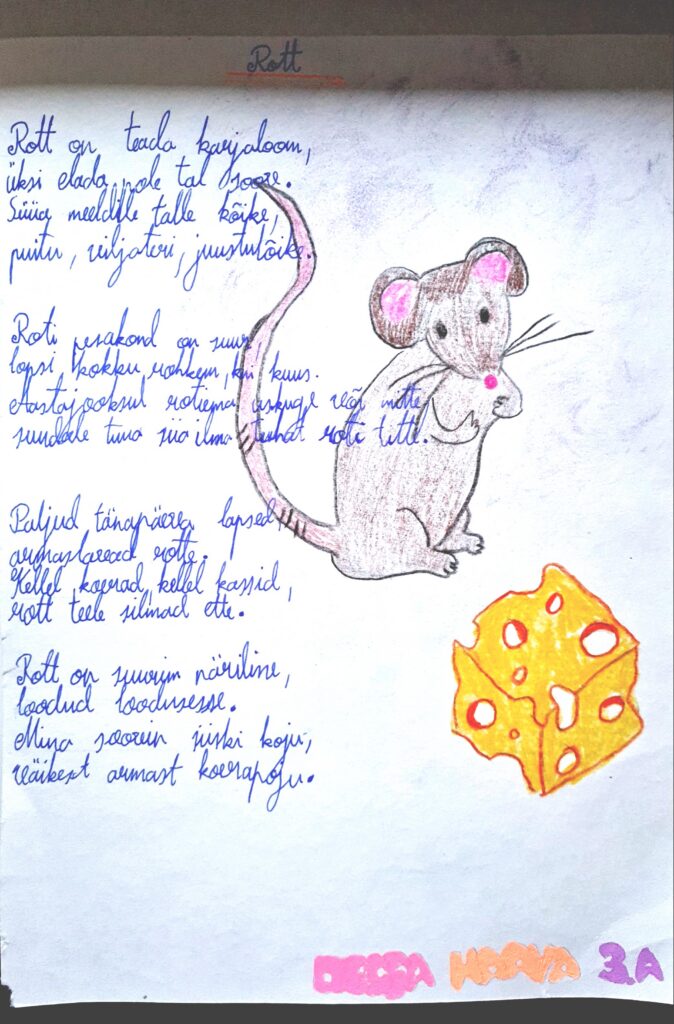 Rott
Rott on teada karjaloom,
üksi elada pole tal soov.
Süüa meeldib talle kõike,
puitu, viljateri, juustulõike.
Roti pesakond on suur
lapsi kokku rohkem, kui kuus.
Aastajooksul rotiema uskuge või mitte
suudab tuua siia ilma tuhat roti titte.
Paljud tänapäeva lapsed,
armastavad rotte.
Kellel koerad, kellel kassid,
rott teeb silmad ette.
Rott on suurim näriline,
loodud loodusesse.
Mina soovin siiski koju,
väikest armast koerapoju.
HAAVA 3.A